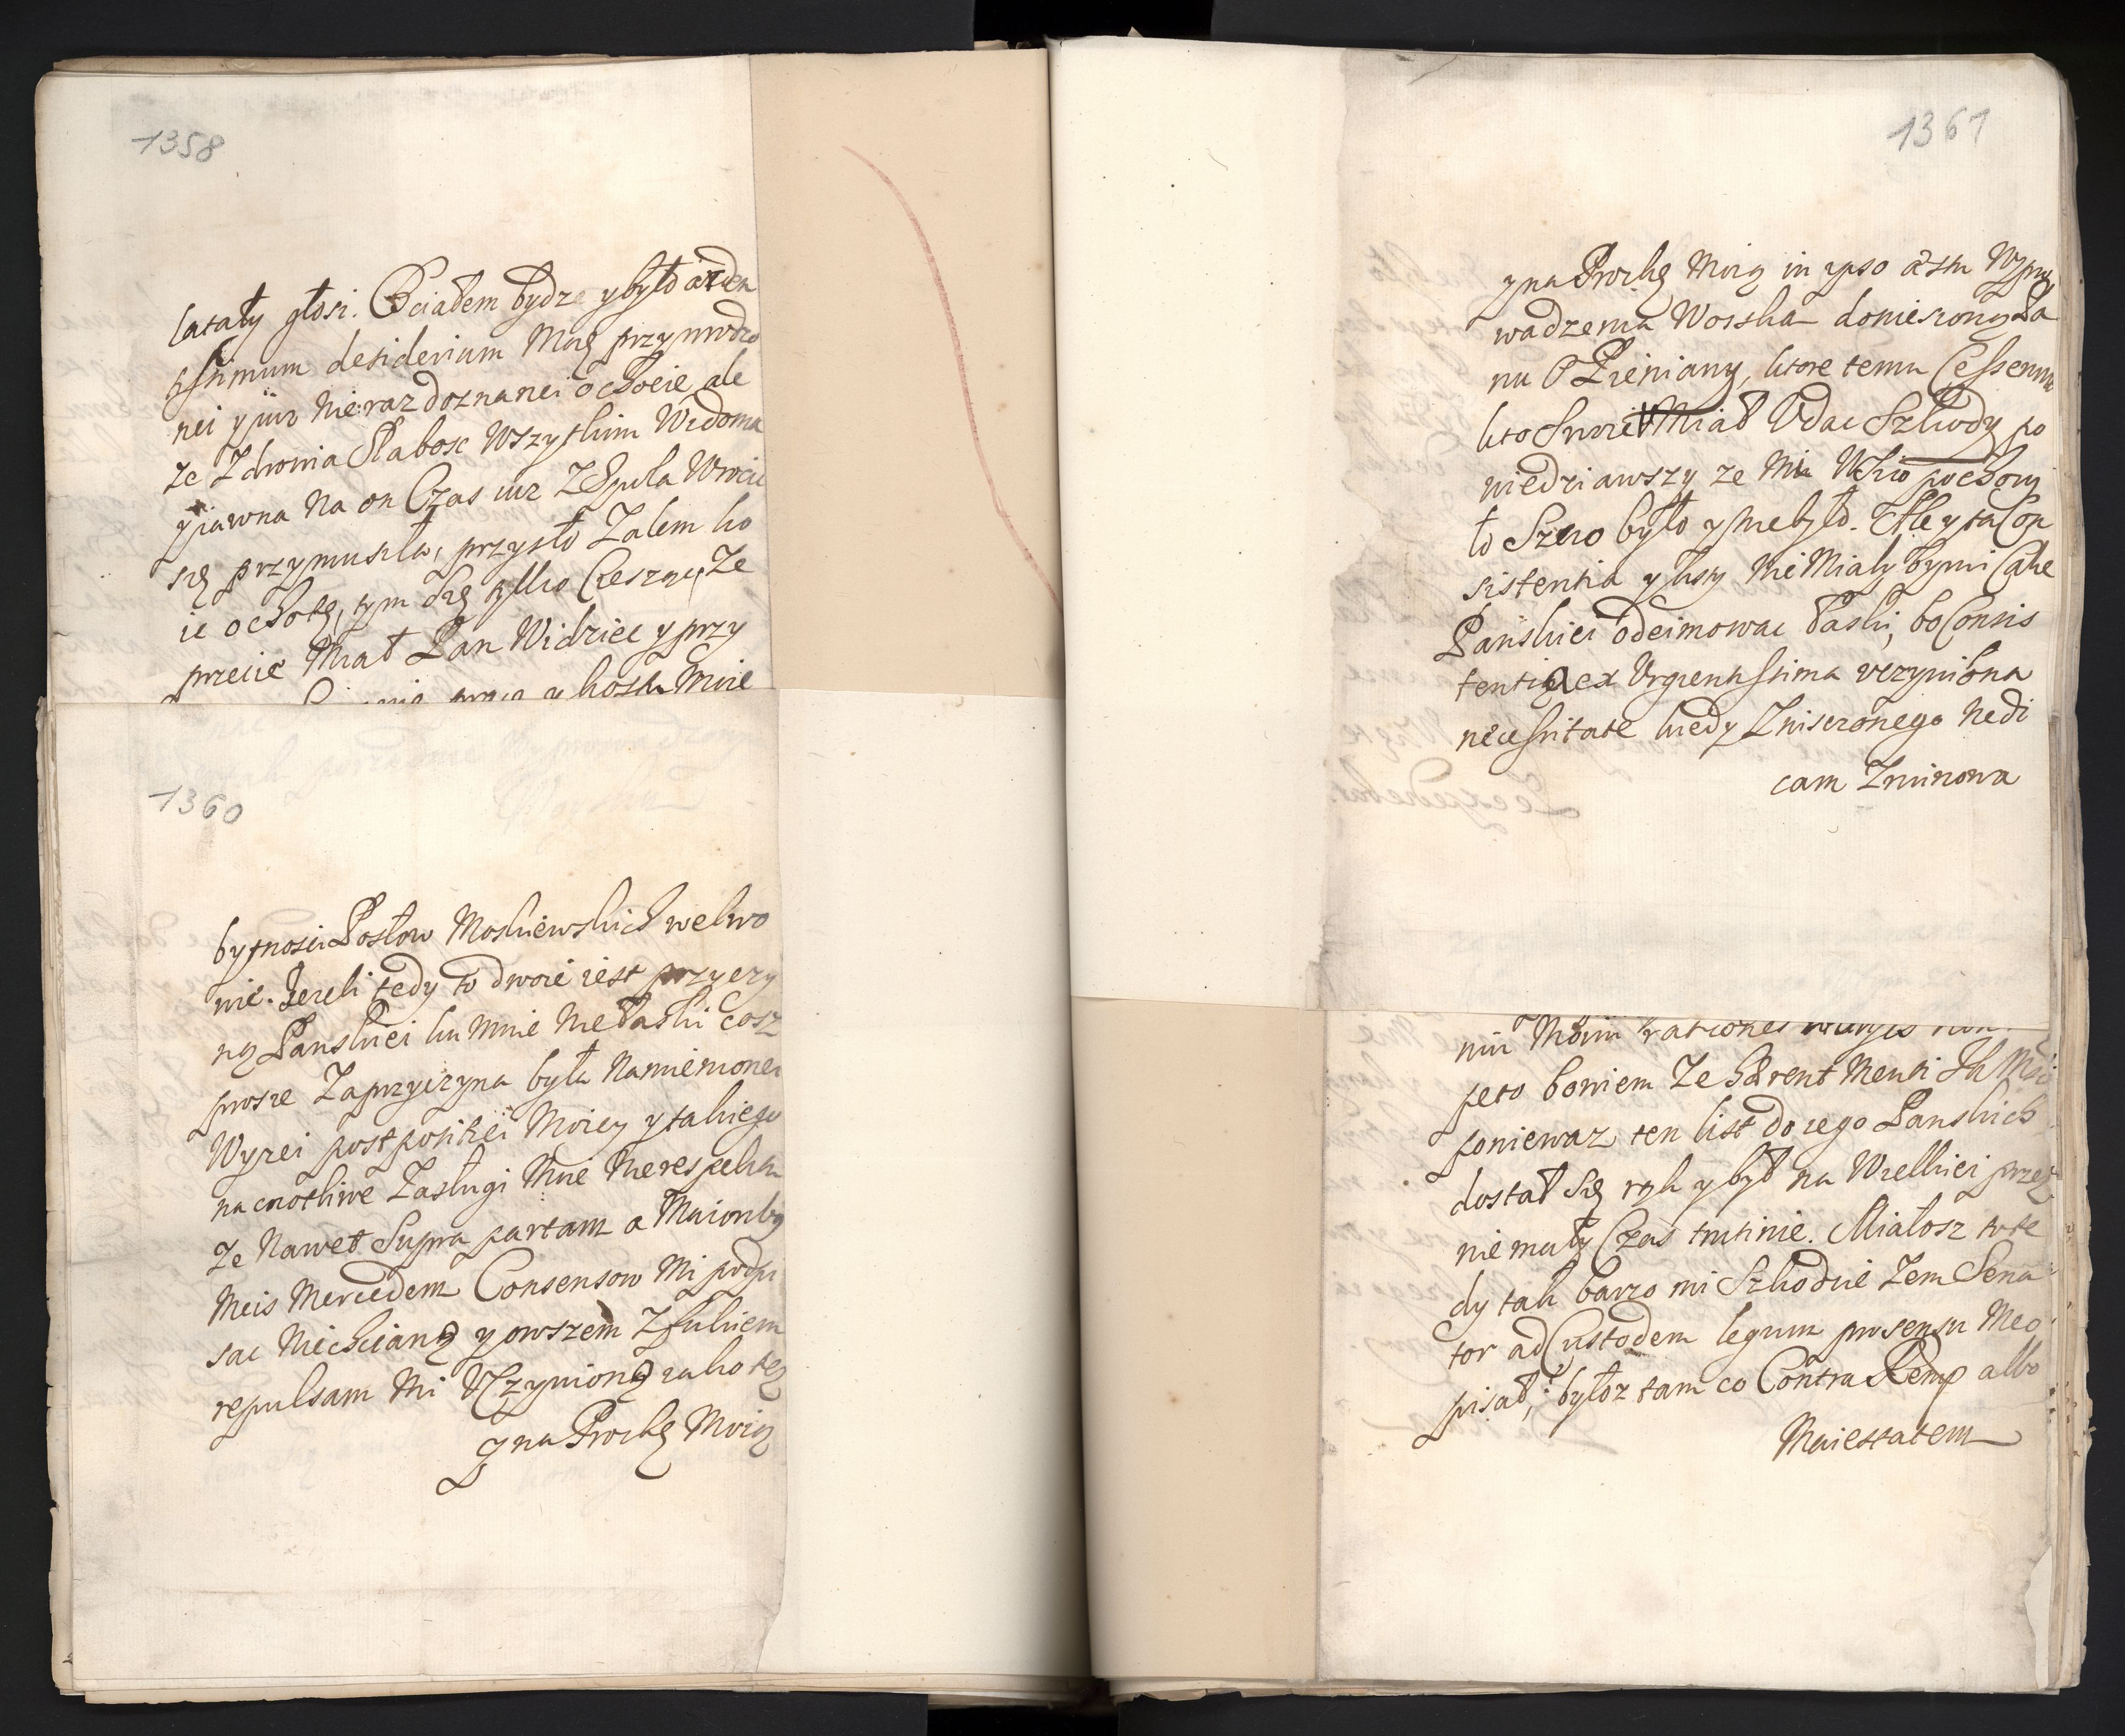 1358
latały głosi. Chciałem bydz y było arden
tissimum desiderium Moię przy nwdro
nei y iuz nieraz doznanei ochocie ale
ze Zdrowia Słabosc Wszystkim Widoma
y iawna na on Czas iuz Zepula Wrocic
się przymusiła, przyszło Zalem ko
ic ochotę, tym Się tylko Cieszący, Ze
przecie Miał Pan Widziec y przy
praca y koszta Moie
1360
bytnosci Posłow Moskiewskich we lwo
wie. Jezeli tedy to dwoie iest przyczy
ną Panskiei ku mnie Niełaski cosz
prosze Zaprzyczyna była namienionei
Wyzei postpositiei Moiey y takiego
na cnotliwe Zasługi Mnie Nierespektu
Ze Nawet Supra partam a Maioribq
Meis Mercedem Consensow Mi podpi
sac Niechciano y owszem Zfukiem
repulsam Mi Uczyniono iako tez
y na Prozbę Moię
1361
y na Prozbę Moię in ipso actu Wypro
wadzenia Woyska doniesioną Pa
nu O Pieniany, ktore temu Cessenne
kto Swoie Miał Udac Szkody po
wiedziawszy ze Mu Ucho pochowy
ło Szero było y niebyło. Ale y ta Con
sistentia y listy nie Miały by mi Całe
Panskiei odeimowac łaski, bo Consis
tentia ex Urgentissima uczyniona
necessitate kiedy Zniszczonego Nedi
cam Zmirowa
mu Moim rationes
peto bowiem Ze hærent Menti Jk Mci
poniewaz ten list do iego Panskich
dostał Się rąk y był na Wielkiei przez
nie mały Czas trutinie. Miałosz to te
dy tak barzo mi Szkodzic Zem Sena
tor ad Custodem legum pro sensu Meo
pisał, byłoz tam co Contra Remp albo
Maiestatem